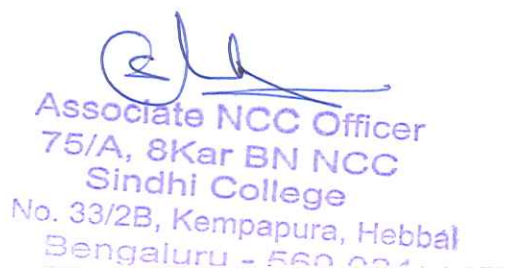 Associate NCC Officer
75/A, 8Kar BN NCC
Sindhi College
No. 33/2B, Kempapura, Hebbal
Bengaluru - 560 024